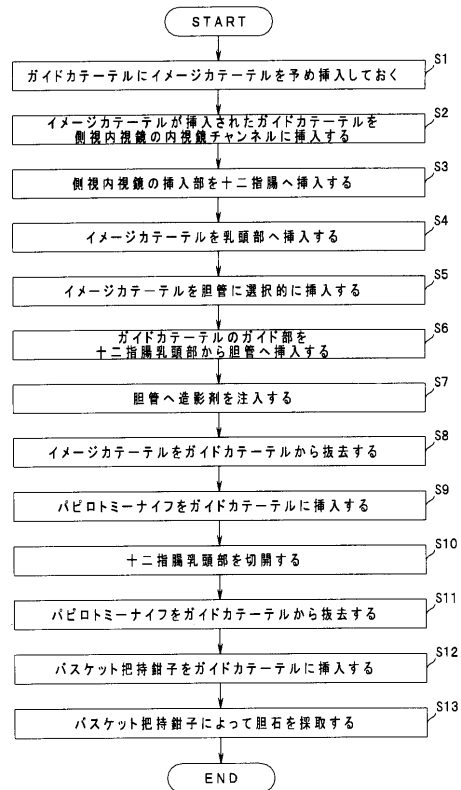 START
S1
ガイドカテーテルにイメージカテーテルを予め挿入しておく
S2
イメージカテーテルが挿入されたガイドカテーテルを
側視内視鏡の内視鏡チャンネルに挿入する
S3
側視内視鏡の挿入部を十二指腸へ挿入する
S4
イメージカテーテルを乳頭部へ挿入する
S5
イメージカテーテルを胆管に選択的に挿入する
S6
ガイドカテーテルのガイド部を
十二指腸乳頭部から胆管へ挿入する
S7
胆管へ造影剤を注入する
S8
イメージカテーテルをガイドカテーテルから抜去する
S9
パピロトミーナイフをガイドカテーテルに挿入する
S10
十二指腸乳頭部を切開する
S11
パピロトミーナイフをガイドカテーテルから抜去する
S12
バスケット把持鉗子をガイドカテーテルに挿入する
S13
バスケット把持鉗子によって胆石を採取する
END